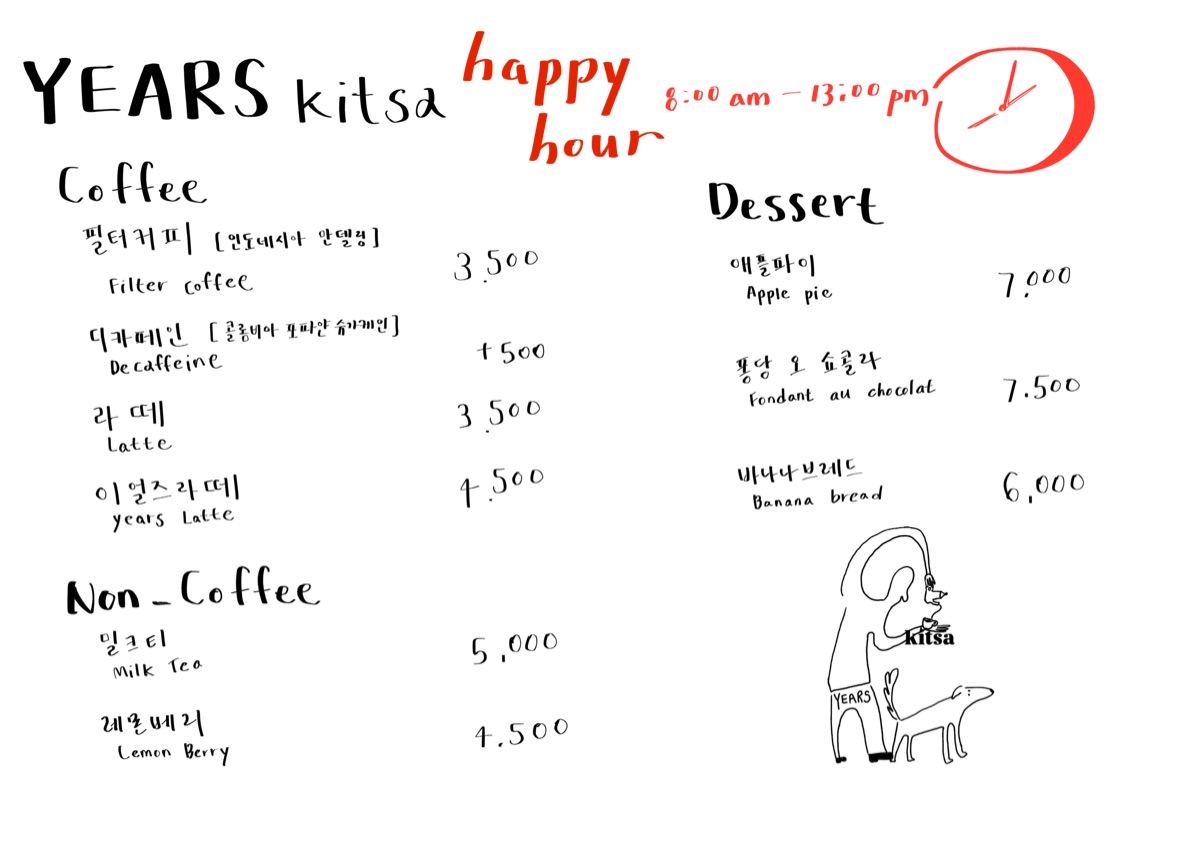 YEARS kitsa happy hour 8:00 am - 13:00 pm
Coffee
필터커피 [인도네시아 만델링] 3.500
Filter coffee
디카페인 [콜롬비아 포파얀 슈가케인] +500
Decaffeine
라떼 3.500
Latte
이얼즈라떼 4.500
years Latte
Non-Coffee
밀크티 5,000
Milk Tea
레몬베리 4.500
Lemon Berry
Dessert
애플파이 7.000
Apple pie
퐁당 오 쇼콜라 7.500
Fondant au chocolat
바나나브레드 6,000
Banana bread
kitsa
YEARS